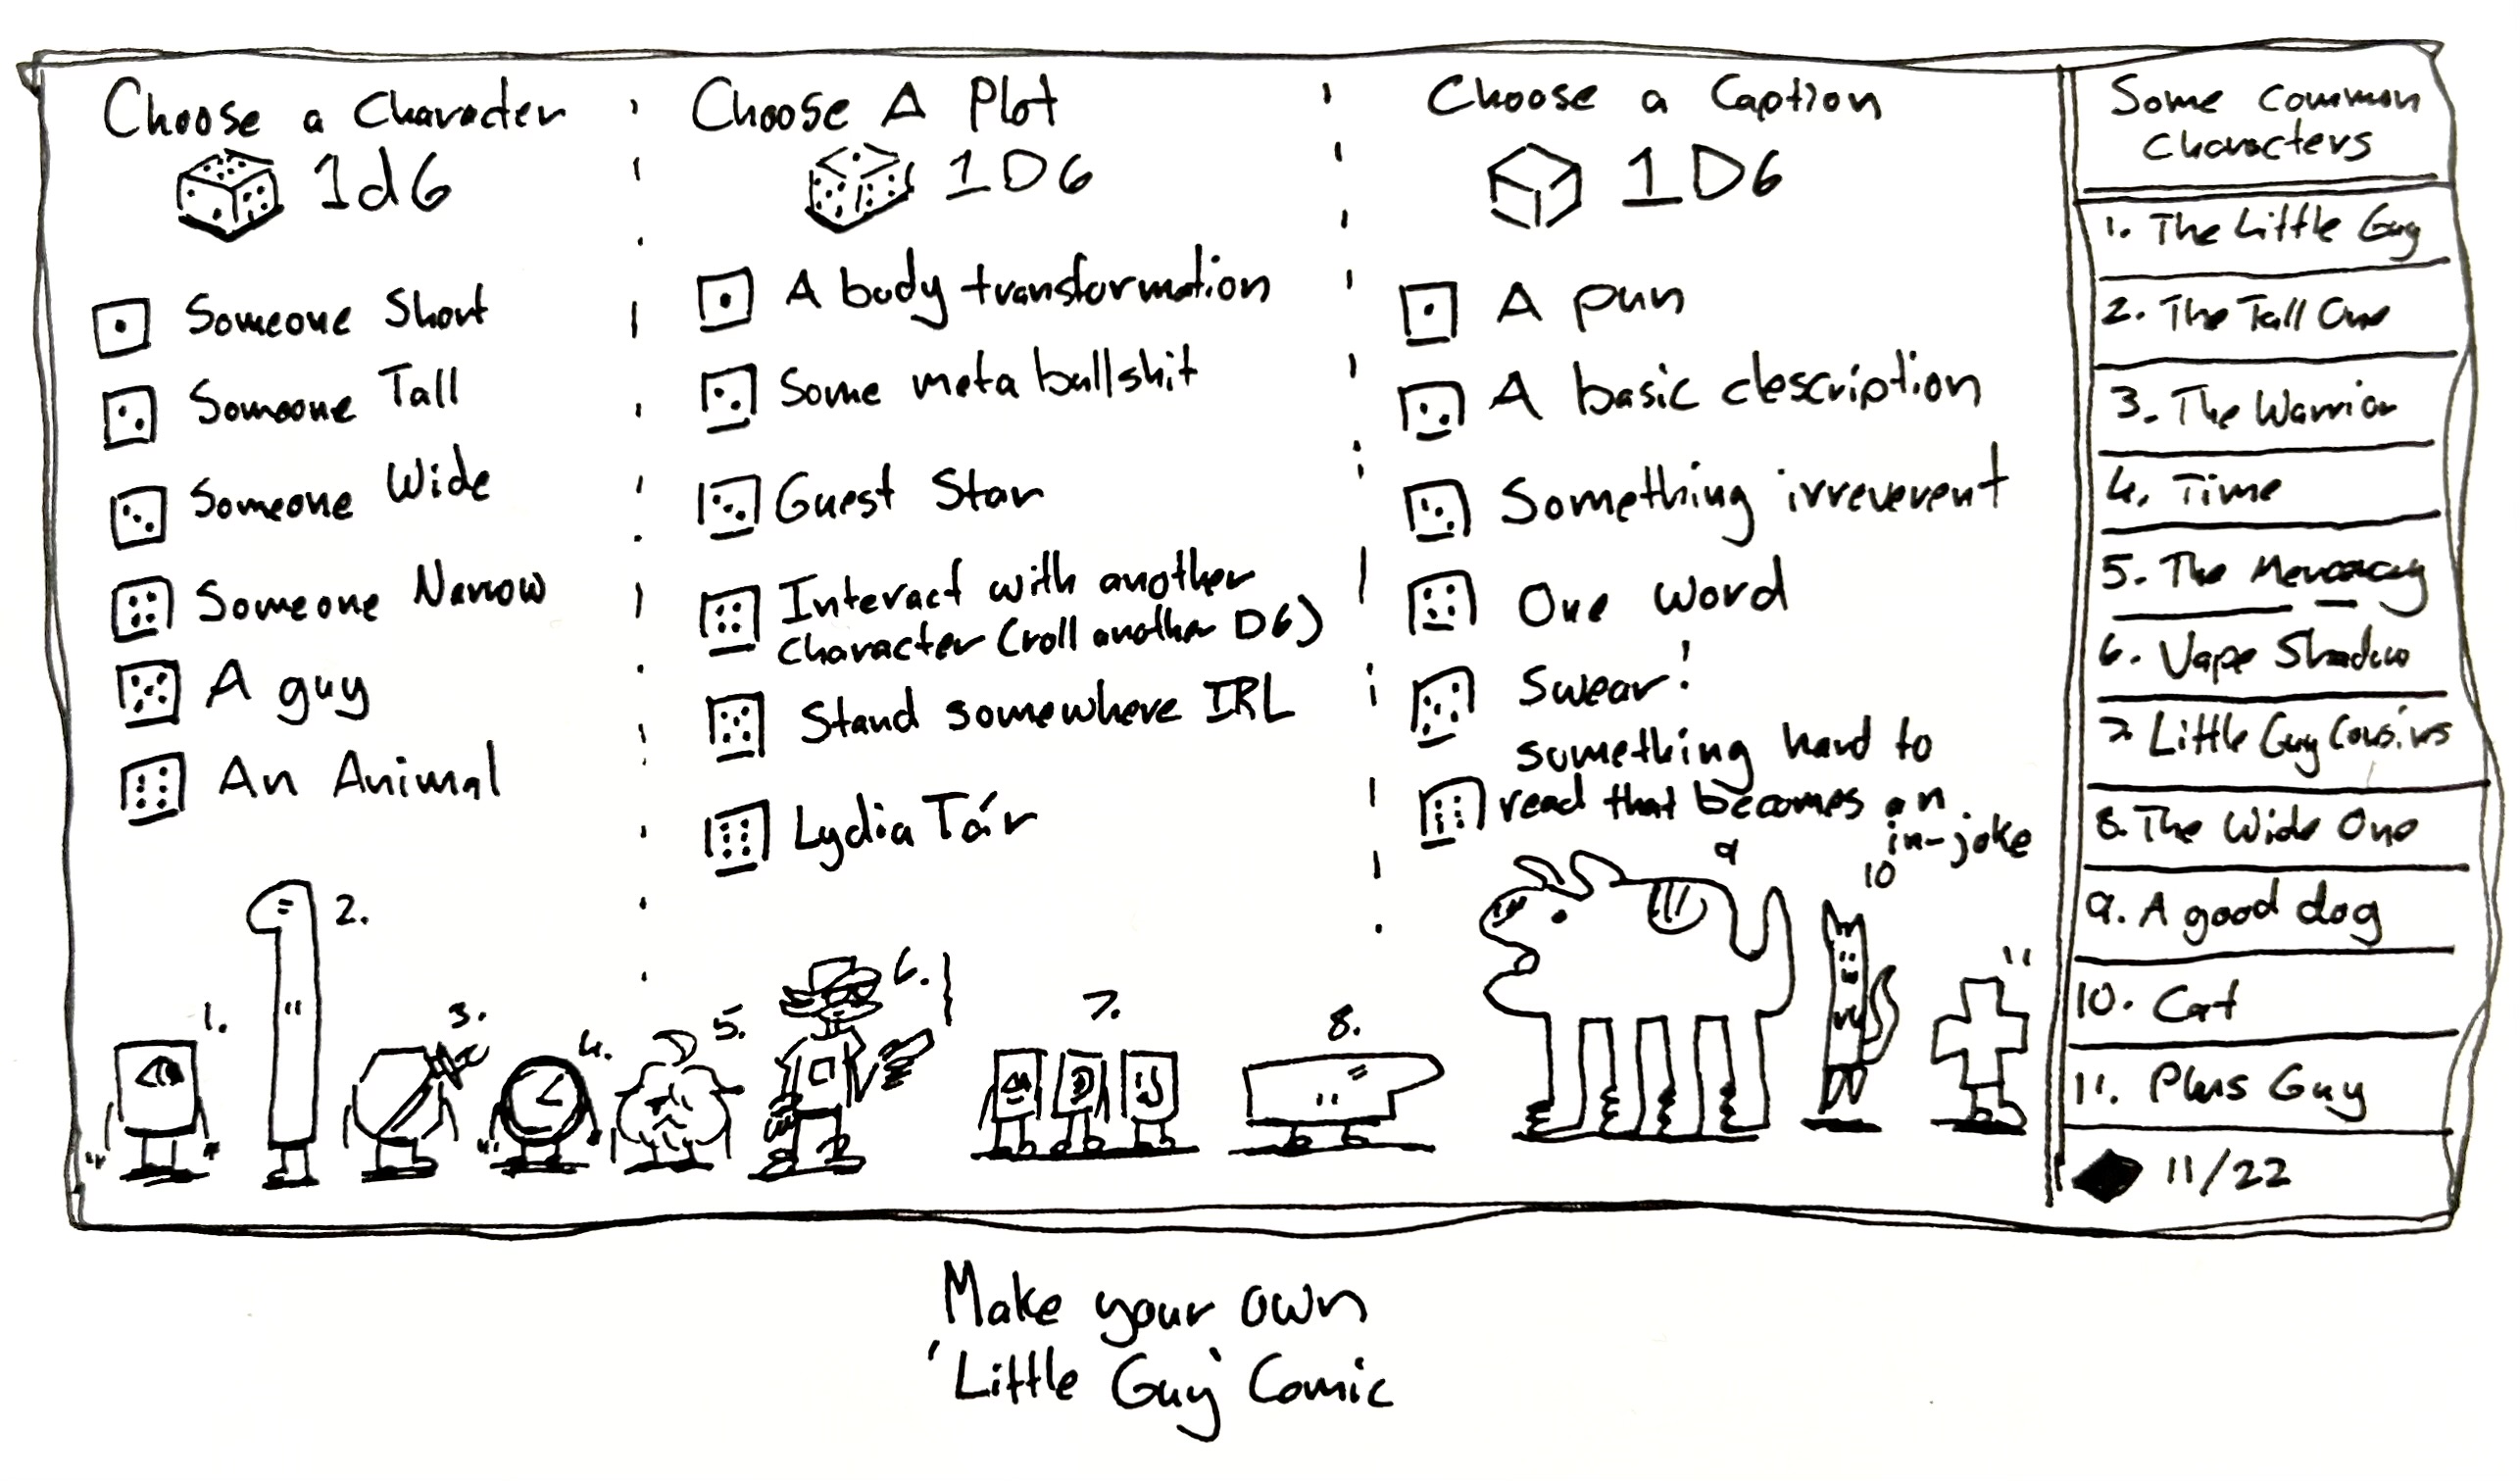 Choose a Character
1d6
Someone Short
Someone Tall
Someone Wide
Someone Narrow
A guy
An Animal
Choose A Plot
1D6
A body transformation
Some meta bullshit
Guest Star
Interact with another
character (roll another D6)
Stand somewhere IRL
Lydia Tár
Choose a Caption
1D6
A pun
A basic description
Something irreverent
One word
Swear!
something hard to
read that becomes an
in-joke
Some common
characters
1. The Little Guy
2. The Tall One
3. The Warrior
4. Time
5. The
6. Vape Shadow
7. Little Guy Cousins
8. The Wide One
9. A good dog
10. Cat
11. Plus Guy
11/22
1.
2.
3.
4.
5.
6.
7.
8.
9
10
11
Make your own
'Little Guy' Comic